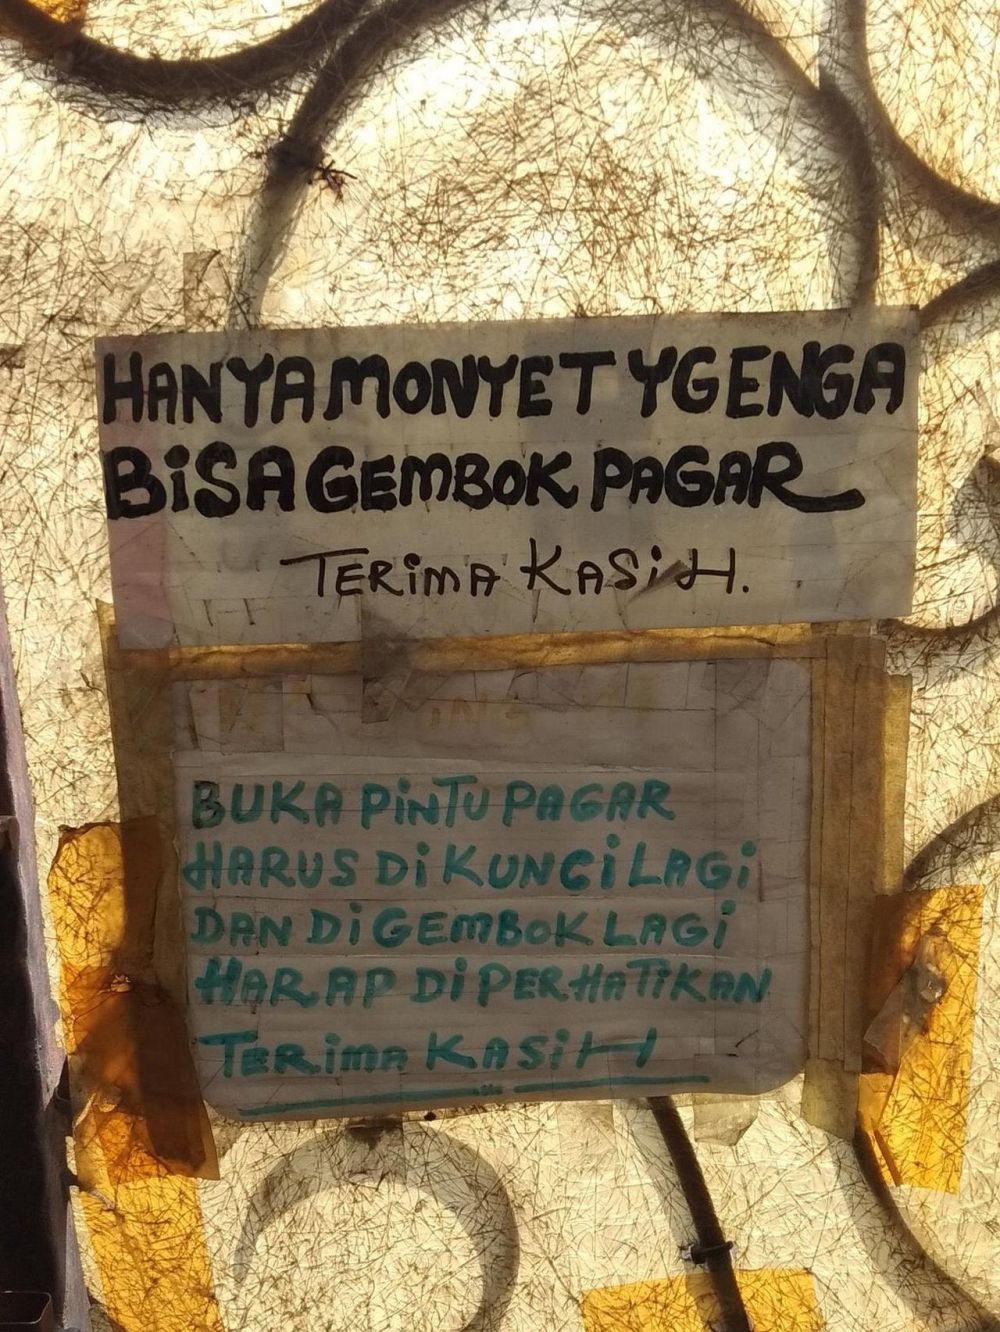 HANYA MONYET YG ENGA
BiSA GEMBOK PAGAR
TERiMA KASiH.
BUKA PiNTU PAGAR
HARUS Di KUNCi LAGi
DAN Di GEMBOK LAGi
HARAP Di PERHATiKAN
TERiMA KASiH